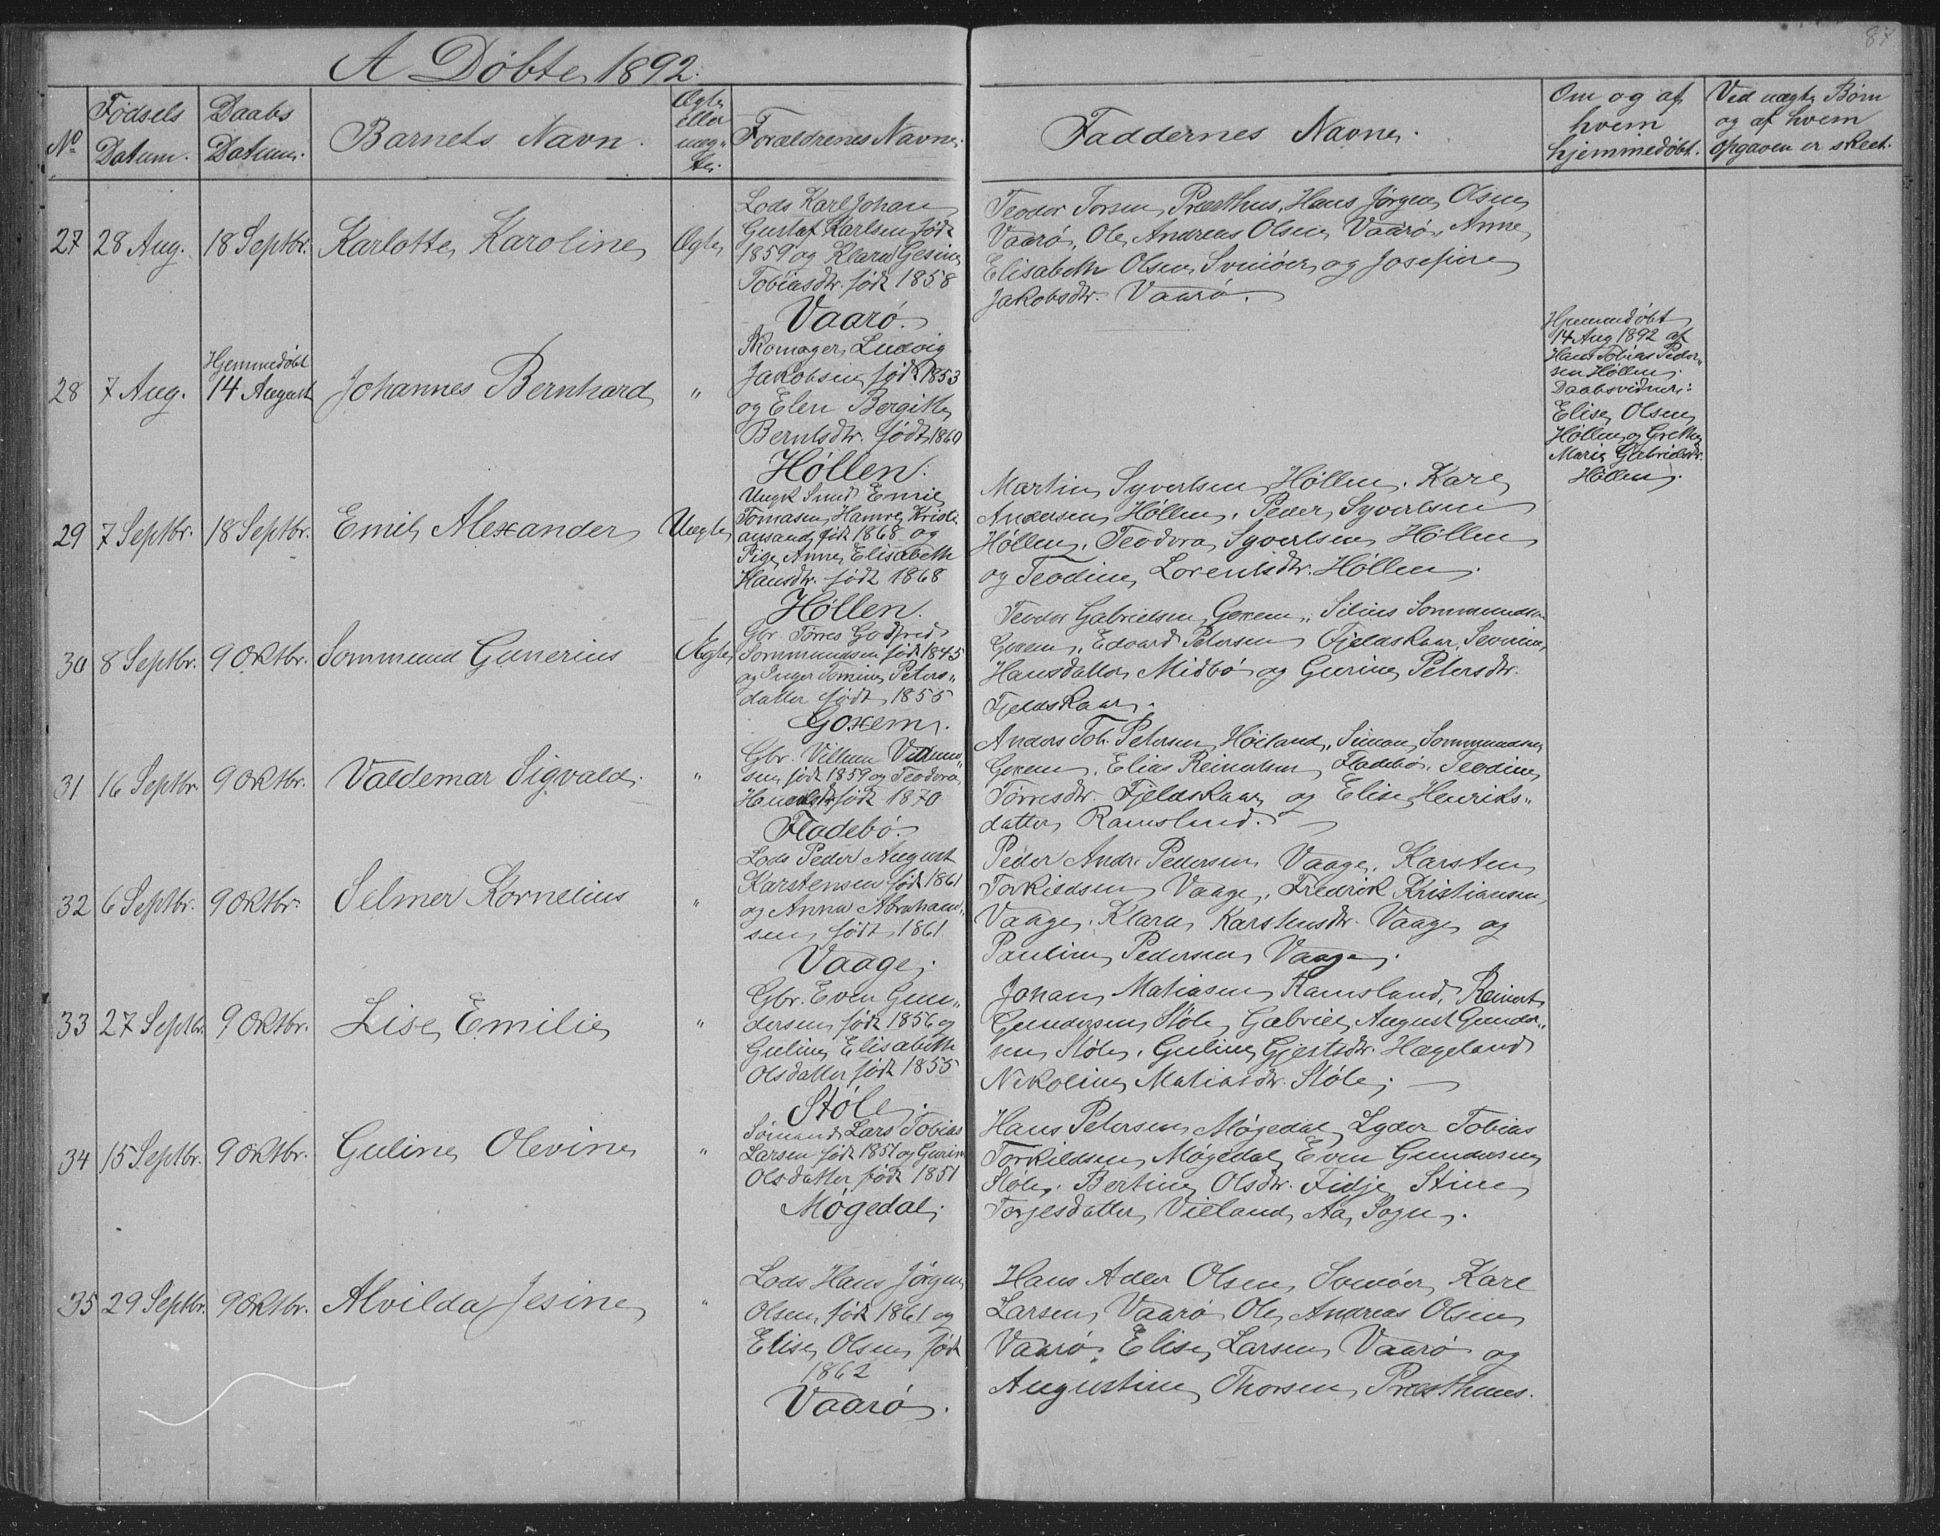 87
A Døbte 1892.
No
Fødsels Datum.
Daabs Datum.
Barnets Navn.
Ægte eller uægte.
Forældrenes Navne.
Faddernes Navne.
Om og af hvem hjemmedøbt.
Ved uægte Børn og af hvem opgaven er skeet.
27
28 Aug.
18 Septbr.
Karlotte Karoline
Ægte
Lods Karl Johan
Gustaf Karlsen født
1859 og Klara Gesine
Tobiasdtr. født 1858
Vaarø.
Teodor Torsen Præsthus, Hans Jørgen Olsen
Vaarø, Ole Andreas Olsen Vaarø, Anne
Elisabeth Olsen Svinøer og Josefine
Jakobsdtr. Vaarø.
28
7 Aug.
Hjemmedøbt
14 August
Johannes Bernhard
"
Skomager Ludvig
Jakobsen født 1853
og Elen Bergitte
Berntsdtr. født 1860
Høllen.
Hjemmedøbt
14 Aug 1892 af
Hans Tobias Peder-
sen Høllen.
Daabsvidner:
Elise Olsen
Høllen og Grethe
Marie Gabrielsdtr.
Høllen.
29
7 Septbr.
18 Septbr.
Emil Alexander
Uægte
Ungk Smed Emil
Tomasen Hamre Kristi
ansand født 1868 og
Pige Anne Elisabeth
Hansdtr. født 1868
Høllen.
Martin Syvertsen Høllen, Karl
Andersen Høllen, Peder Syvertsen
Høllen, Teodora Syvertsen Høllen
og Teodine Lorentsdtr. Høllen.
30
8 Septbr.
9 Oktbr.
Sommund Gunerius
Ægte
Gbr. Tørres Godfred
Sommundsen født 1845
og Inger Tomine Peters-
datter født 1855
Goxem.
Teodor Gabrielsen Goxem, Silius Sommundsen
Goxem, Edvard Petersen Fjeldskaar, Severine
Hansdatter Midbø og Gurine Petersdtr.
Fjeldskaar.
31
16 Septbr.
9 Oktbr.
Valdemar Sigvald.
"
Gbr. Villum Villum-
sen født 1859 og Teodora
født 1870
Fladebø.
Anders Tob. Petersen Høiland, Simon Sommundsen
Goxem, Elias Reinertsen Fladebø, Teodine
Tørresdtr. Fjeldskaar og Elise Henriks-
datter Ramsland.
32
6 Septbr.
9 Oktbr.
Selmer Kornelius
"
Lods Peder August
Karstensen født 1861
og Anna Abraham-
sen født 1861
Vaage.
Peder Andr. Pedersen Vaage, Karsten
Torkildsen Vaage, Fredrik Kristiansen
Vaage, Klara Karstensdtr. Vaage og
Pauline Pedersen Vaage.
33
27 Septbr.
9 Oktbr.
Lise Emilie
"
Gbr. Even Gun-
dersen født 1856 og
Guline Elisabeth
Olsdatter født 1855
Støle.
Johan Matiasen Ramsland, Reinert
Gundersen Støle, Gabriel August Gunder-
sen Støle, Guline Gjertsdtr. Hægeland
Nikoline Matiasdtr. Støle.
34
15 Septbr.
9 Oktbr.
Guline Olevine
"
Sømand Lars Tobias
Larsen født 1851 og Gurine
Olsdatter født 1851
Møgedal.
Hans Petersen Møgedal, Lyder Tobias
Torkildsen Møgedal, Even Gundersen
Støle, Bertine Olsdtr. Fidje, Stine
Torjesdatter Vieland Aa Sogn.
35
29 Septbr.
9 Oktbr.
Alvilda Jesine
"
Lods Hans Jørgen
Olsen født 1861 og
Elise Olsen født
1862
Vaarø.
Hans Adler Olsen Svinøer, Karl
Larsen Vaarø, Ole Andreas Olsen
Vaarø, Elise Larsen Vaarø og
Augustine Thorsen Præsthuus.